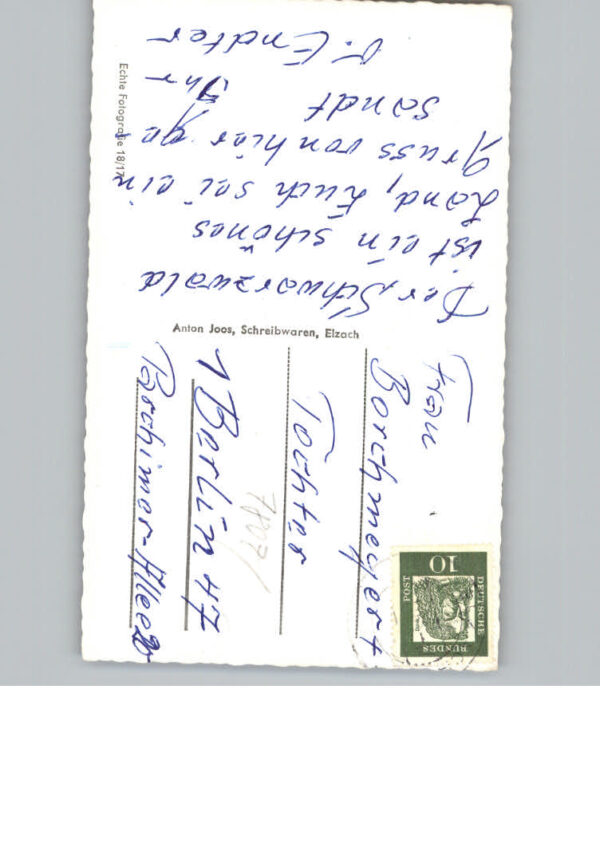 Der Schwarzwald
ist ein schönes
Land, Euch sei ein
Gruss von hier ge
sandt
Ihr
Endter
Echte Fotografie 18/17
Anton Joos, Schreibwaren, Elzach
Frau
Borchmeyer +
Tochter
1 Berlin 47
Parchimer-Allee
DEUTSCHE
BUNDES
POST
10